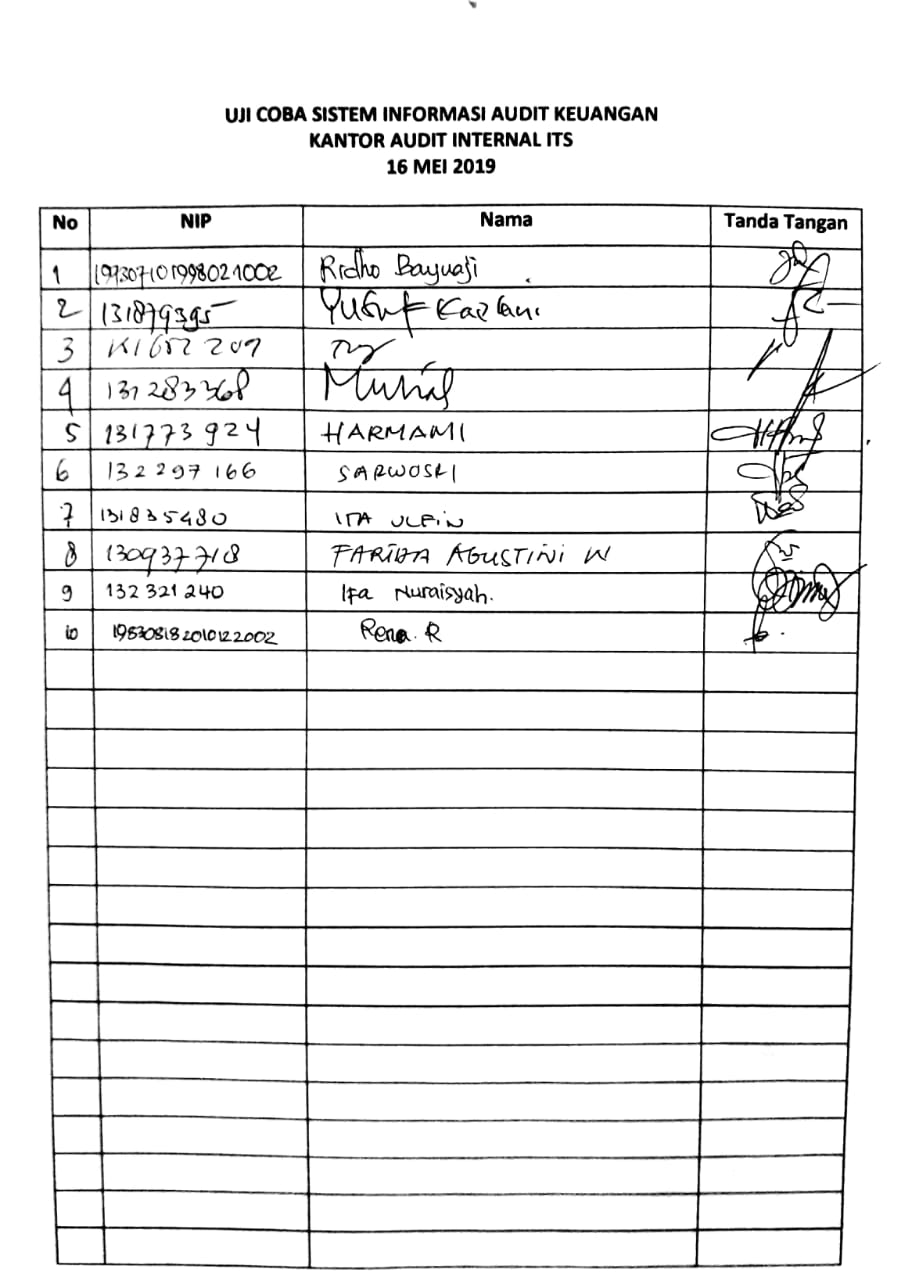 UJI COBA SISTEM INFORMASI AUDIT KEUANGAN
KANTOR AUDIT INTERNAL ITS
16 MEI 2019
No NIP Nama Tanda Tangan
1 197307101998021002 Ridho Bayuaji
2 131879395 Yusuf
3
4 131283368
5 131773924 HARMAMI
6 132297166 SARWOSRI
7 131835480 ITA ULFIN
8 130937718 FARIDA AGUSTINI W
9 132 321 240 Ifa Nuraisyah.
10 198308182010122002 Rena. R